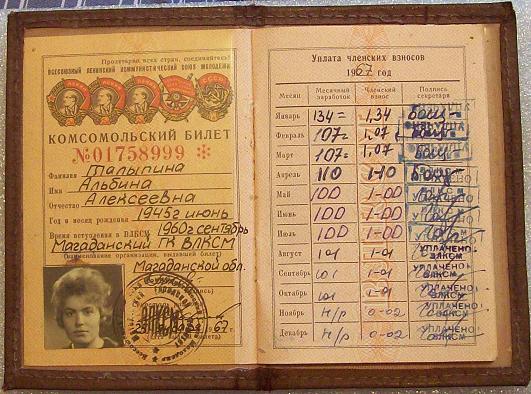 Пролетарии всех стран, соединяйтесь!
ВСЕСОЮЗНЫЙ ЛЕНИНСКИЙ КОММУНИСТИЧЕСКИЙ СОЮЗ МОЛОДЕЖИ
КОМСОМОЛЬСКИЙ БИЛЕТ
№01758999
Фамилия Талыпина
Имя Альбина
Отчество Алексеевна
Год и месяц рождения 1945г июнь
Время вступления в ВЛКСМ 1960г сентябрь
Магаданский ГК ВЛКСМ
(наименование организации, выдавшей билет)
Магаданской обл.
Уплата членских взносов
1967 год
Месяц Месячный заработок Членский взнос Подпись секретаря
Январь 134= 1,34
Февраль 107= 1,07
Март 107= 1,07
Апрель 110 1-10
Май 100 1-00
Июнь 100 1-00
Июль 100 1-00
Август 101 1-01 УПЛАЧЕНО ВЛКСМ
Сентябрь 101 1-01 УПЛАЧЕНО ВЛКСМ
Октябрь 101 1-01 УПЛАЧЕНО ВЛКСМ
Ноябрь н/р 0-02 УПЛАЧЕНО ВЛКСМ
Декабрь н/р 0-02 УПЛАЧЕНО ВЛКСМ